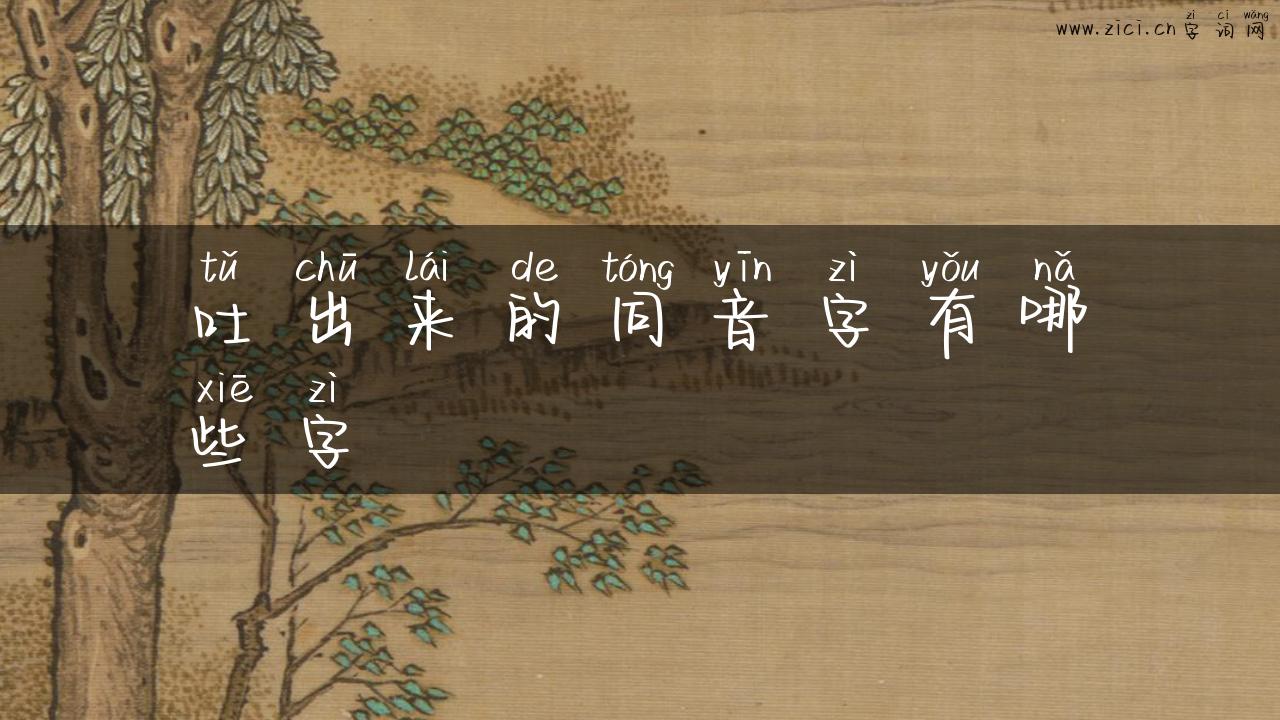 zì cí wǎng
www.zici.cn 字词网
tǔ chū lái de tóng yīn zì yǒu nǎ
吐出来的同音字有哪
xiē zì
些字